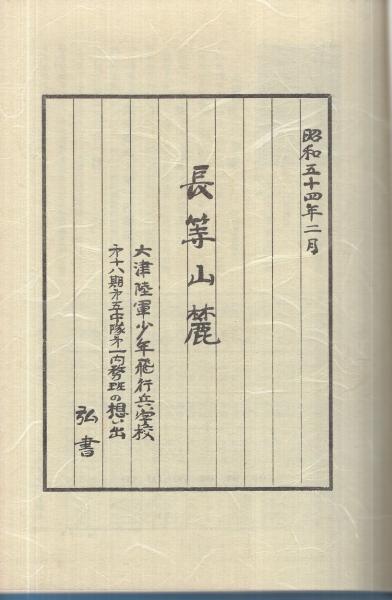 昭和五十四年二月
長等山麓
大津陸軍少年飛行兵学校
㐧十八期㐧五中隊㐧一内務班の想い出
弘書